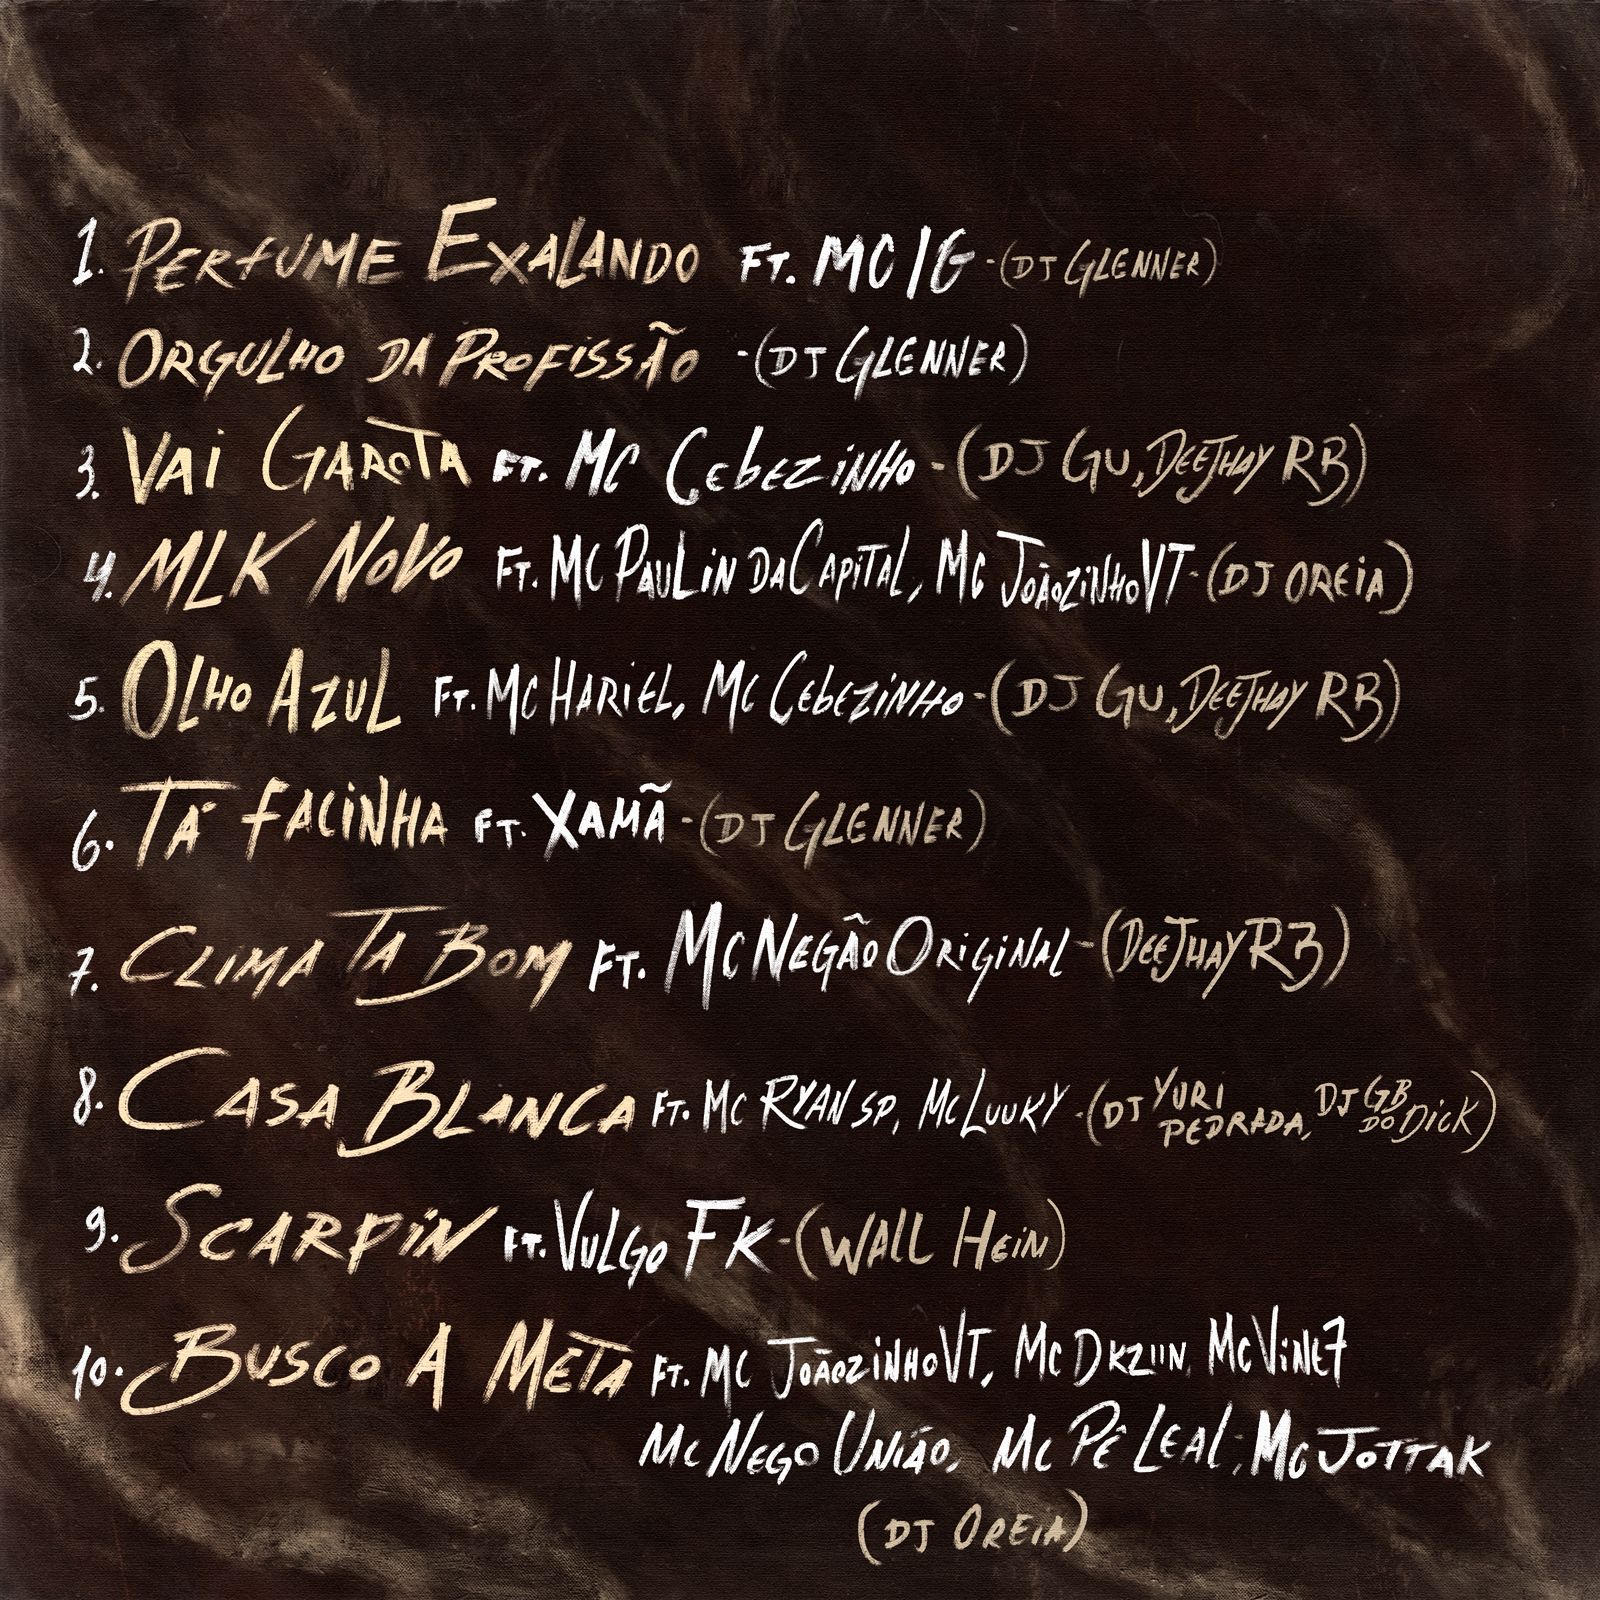 1. PERFUME EXALANDO FT. MC IG -(DJ GLENNER)
2. ORGULHO DA PROFISSÃO -(DJ GLENNER)
3. VAI GAROTA FT. MC CEBEZINHO -(DJ GU, DEEJHAY RB)
4. MLK NOVO FT. MC PAULIN DA CAPITAL, MC JOÃOZINHO VT -(DJ OREIA)
5. OLHO AZUL FT. MC HARIEL, MC CEBEZINHO -(DJ GU, DEEJHAY RB)
6. TÁ FACINHA FT. XAMÃ -(DJ GLENNER)
7. CLIMA TA BOM FT. MC NEGÃO ORIGINAL -(DEEJHAY RB)
8. CASA BLANCA FT. MC RYAN SP, MC LUUKY -(DJ YURI PEDRADA, DJ GB DO DICK)
9. SCARPIN FT. VULGO FK -(WALL HEIN)
10. BUSCO A META FT. MC JOÃOZINHO VT, MC DKZIIN, MC VINE7
MC NEGO UNIÃO, MC PÊ LEAL, MC JOTTAK
(DJ OREIA)